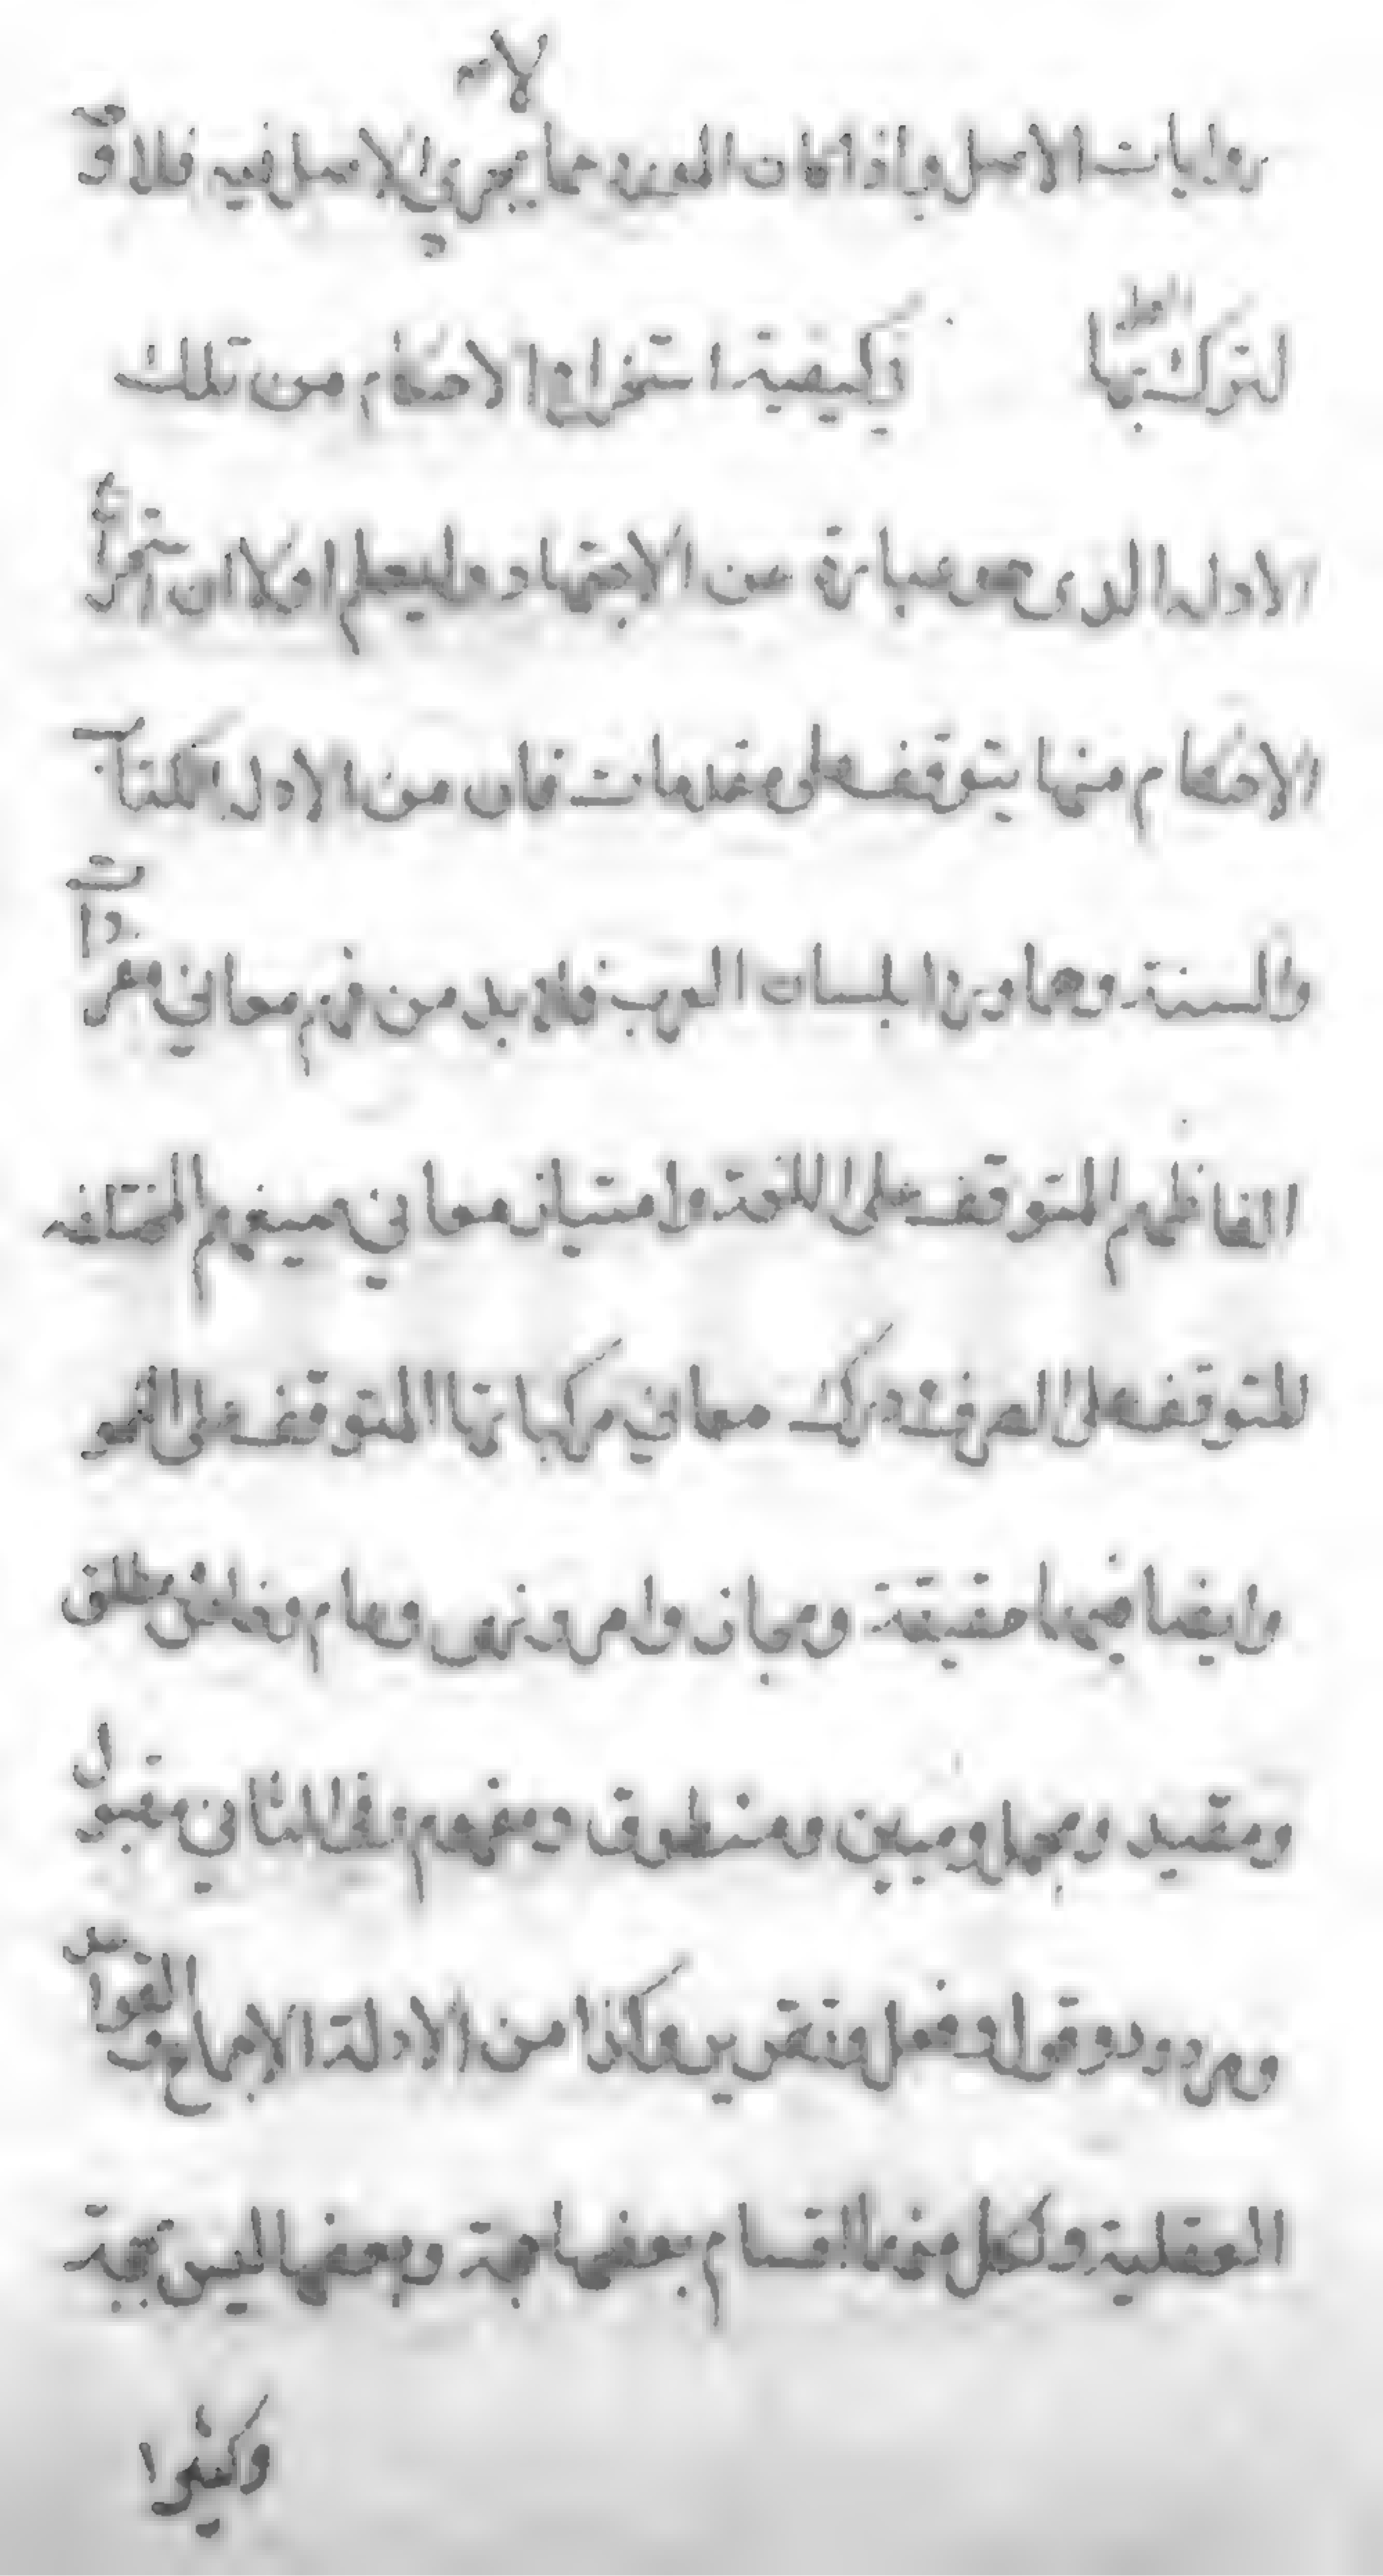 روايات الاصل واذا كان المورد مما يجري الاصل فيه فلا وجه
لترك بها في كيفية استخراج الاحكام من تلك
الادلة الذى هو عبارة عن الاجتهاد وليعلم اولا ان استخراج
الاحكام منها يتوقف على مقدمات فان من الادلة الكتاب
والسنة وهما وردا بلسان العرب فلا بد من فهم معاني مفردات
الفاظهم المتوقف على اللغة وامتياز معاني صيغهم المختلفة
المتوقف على الصرف ودرك معاني مركباتها المتوقف على النحو
وايضا فيهما حقيقة ومجاز وامر ونهى وعام وخاص ومطلق
ومقيد ومجمل ومبين ومنطوق ومفهوم وفى الثاني مقبول
ومردود وقول وفعل وتقرير وكذا من الادلة الاجماع والقواعد
العقلية ولكل منهما اقسام بعضها حجة وبعضها ليس بحجة
وكثيرا